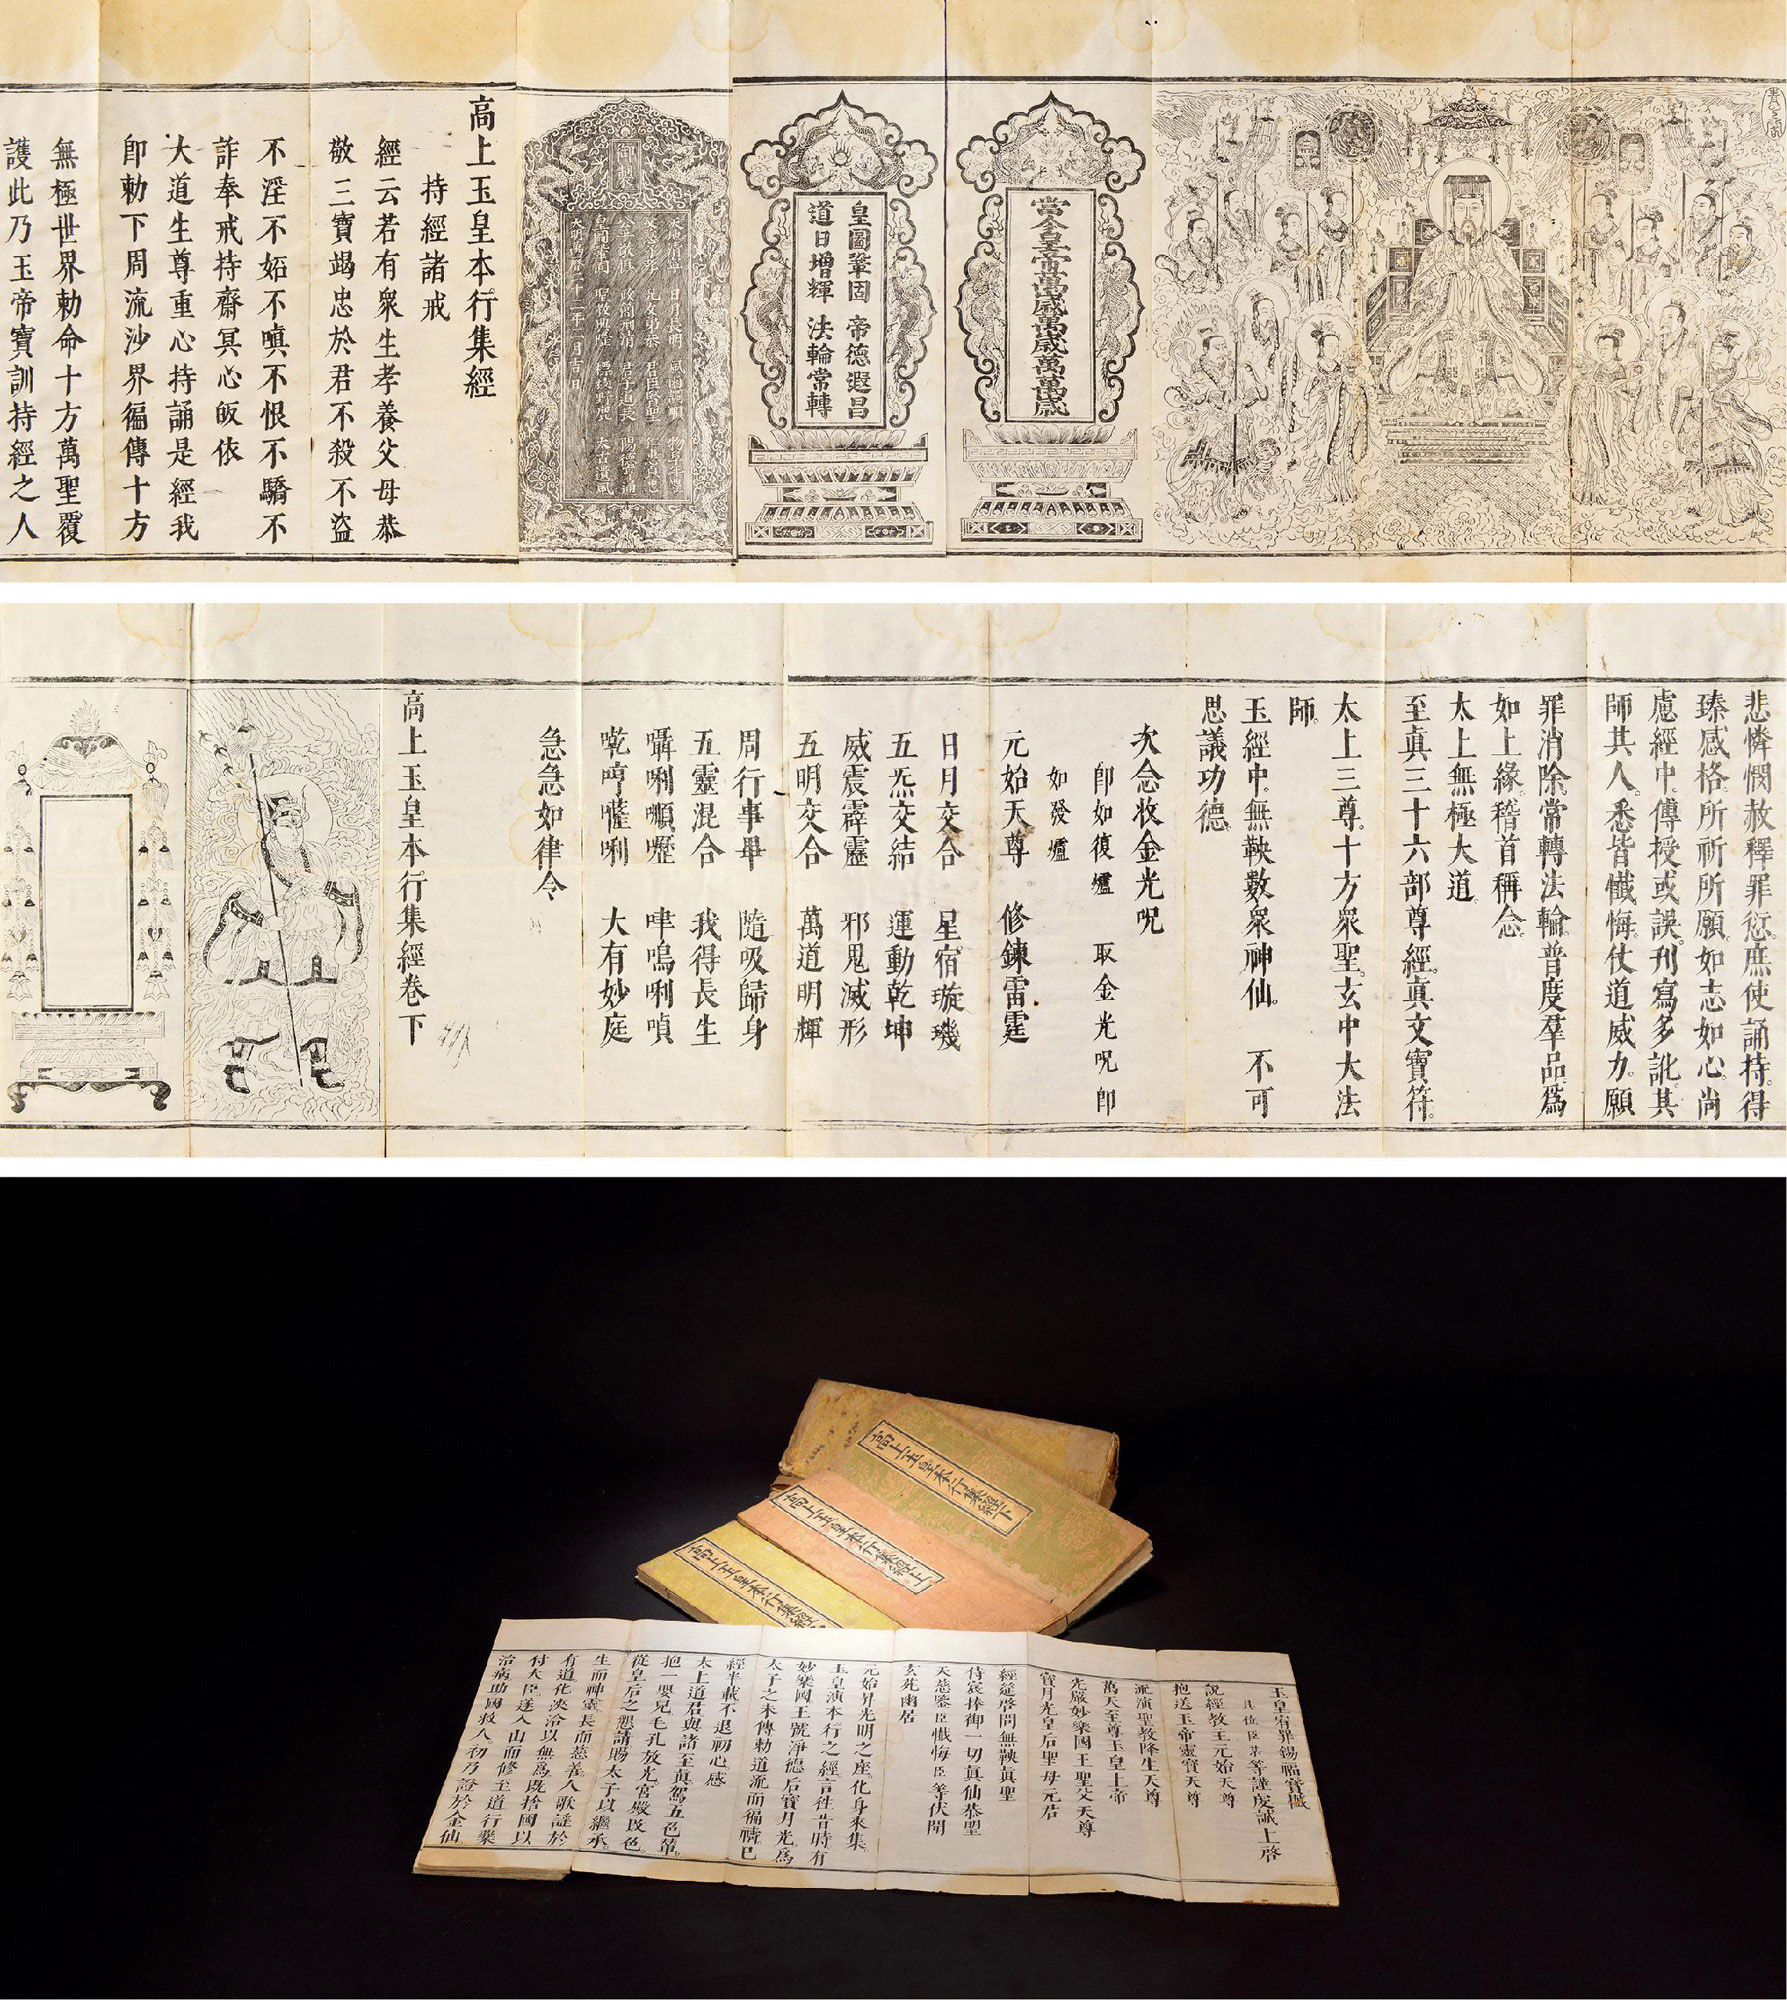 當今皇帝萬歲萬歲萬萬歲
皇圖鞏固 帝德遐昌
道日增輝 法輪常轉
御製
高上玉皇本行集經
持經諸戒
經云若有衆生孝養父母恭
敬三寶竭忠於君不殺不盜
不淫不妬不嗔不恨不驕不
詐奉戒持齋冥心皈依
大道生尊重心持誦是經我
卽勅下周流沙界徧傳十方
無極世界勅命十方萬聖覆
護此乃玉帝寶訓持經之人
悲憐憫赦釋罪愆庶使誦持得
瑧感格所祈所願如志如心尚
慮經中傳授或誤刊寫多訛其
師其人悉皆懺悔仗道威力願
罪消除常轉法輪普度羣品爲
如上緣稽首稱念
太上無極大道
至眞三十六部尊經眞文寶符
太上三尊十方衆聖玄中大法
師
玉經中無鞅數衆神仙 不可
思議功德
次念收金光呪
卽如復爐 取金光呪卽
如發爐
元始天尊 修鍊雷霆
日月交合 星宿璇璣
五炁交結 運動乾坤
威震霹靂 邪鬼滅形
五明交合 萬道明輝
周行事畢 隨吸歸身
五靈混合 我得長生
囁唎嚬嚦 㖀嗚唎嗩
㗿哼囄唎 大有妙庭
急急如律令
高上玉皇本行集經卷下
高上玉皇本行集經下
高上玉皇本行集經上
高上玉皇本行集經
玉皇宥罪錫福寶懺
具位臣某等謹虔誠上啓
說經教主元始天尊
抱送玉帝靈寶天尊
流演聖教降生天尊
萬天至尊玉皇上帝
光嚴妙樂國王聖父天尊
寶月光皇后聖母元君
經筵啓問無鞅眞聖
侍宸捧御一切眞仙恭望
天慈鑒臣懺悔臣等伏聞
玄死幽居
元始昇光明之座化身來集
玉皇演本行之經言徃昔時有
妙樂國王號淨德后寶月光爲
太子之未傳勅道流而徧禱已
經半載不退初心感
太上道君與諸至眞駕五色輦
抱一嬰兒毛孔放光宮殿改色
從皇后之懇請賜太子以繼承
生而神靈長而慈善人歌謡於
有道化浹洽以無爲旣捨國以
付大臣遂入山而修至道行藥
治病助國救人初乃證於金仙